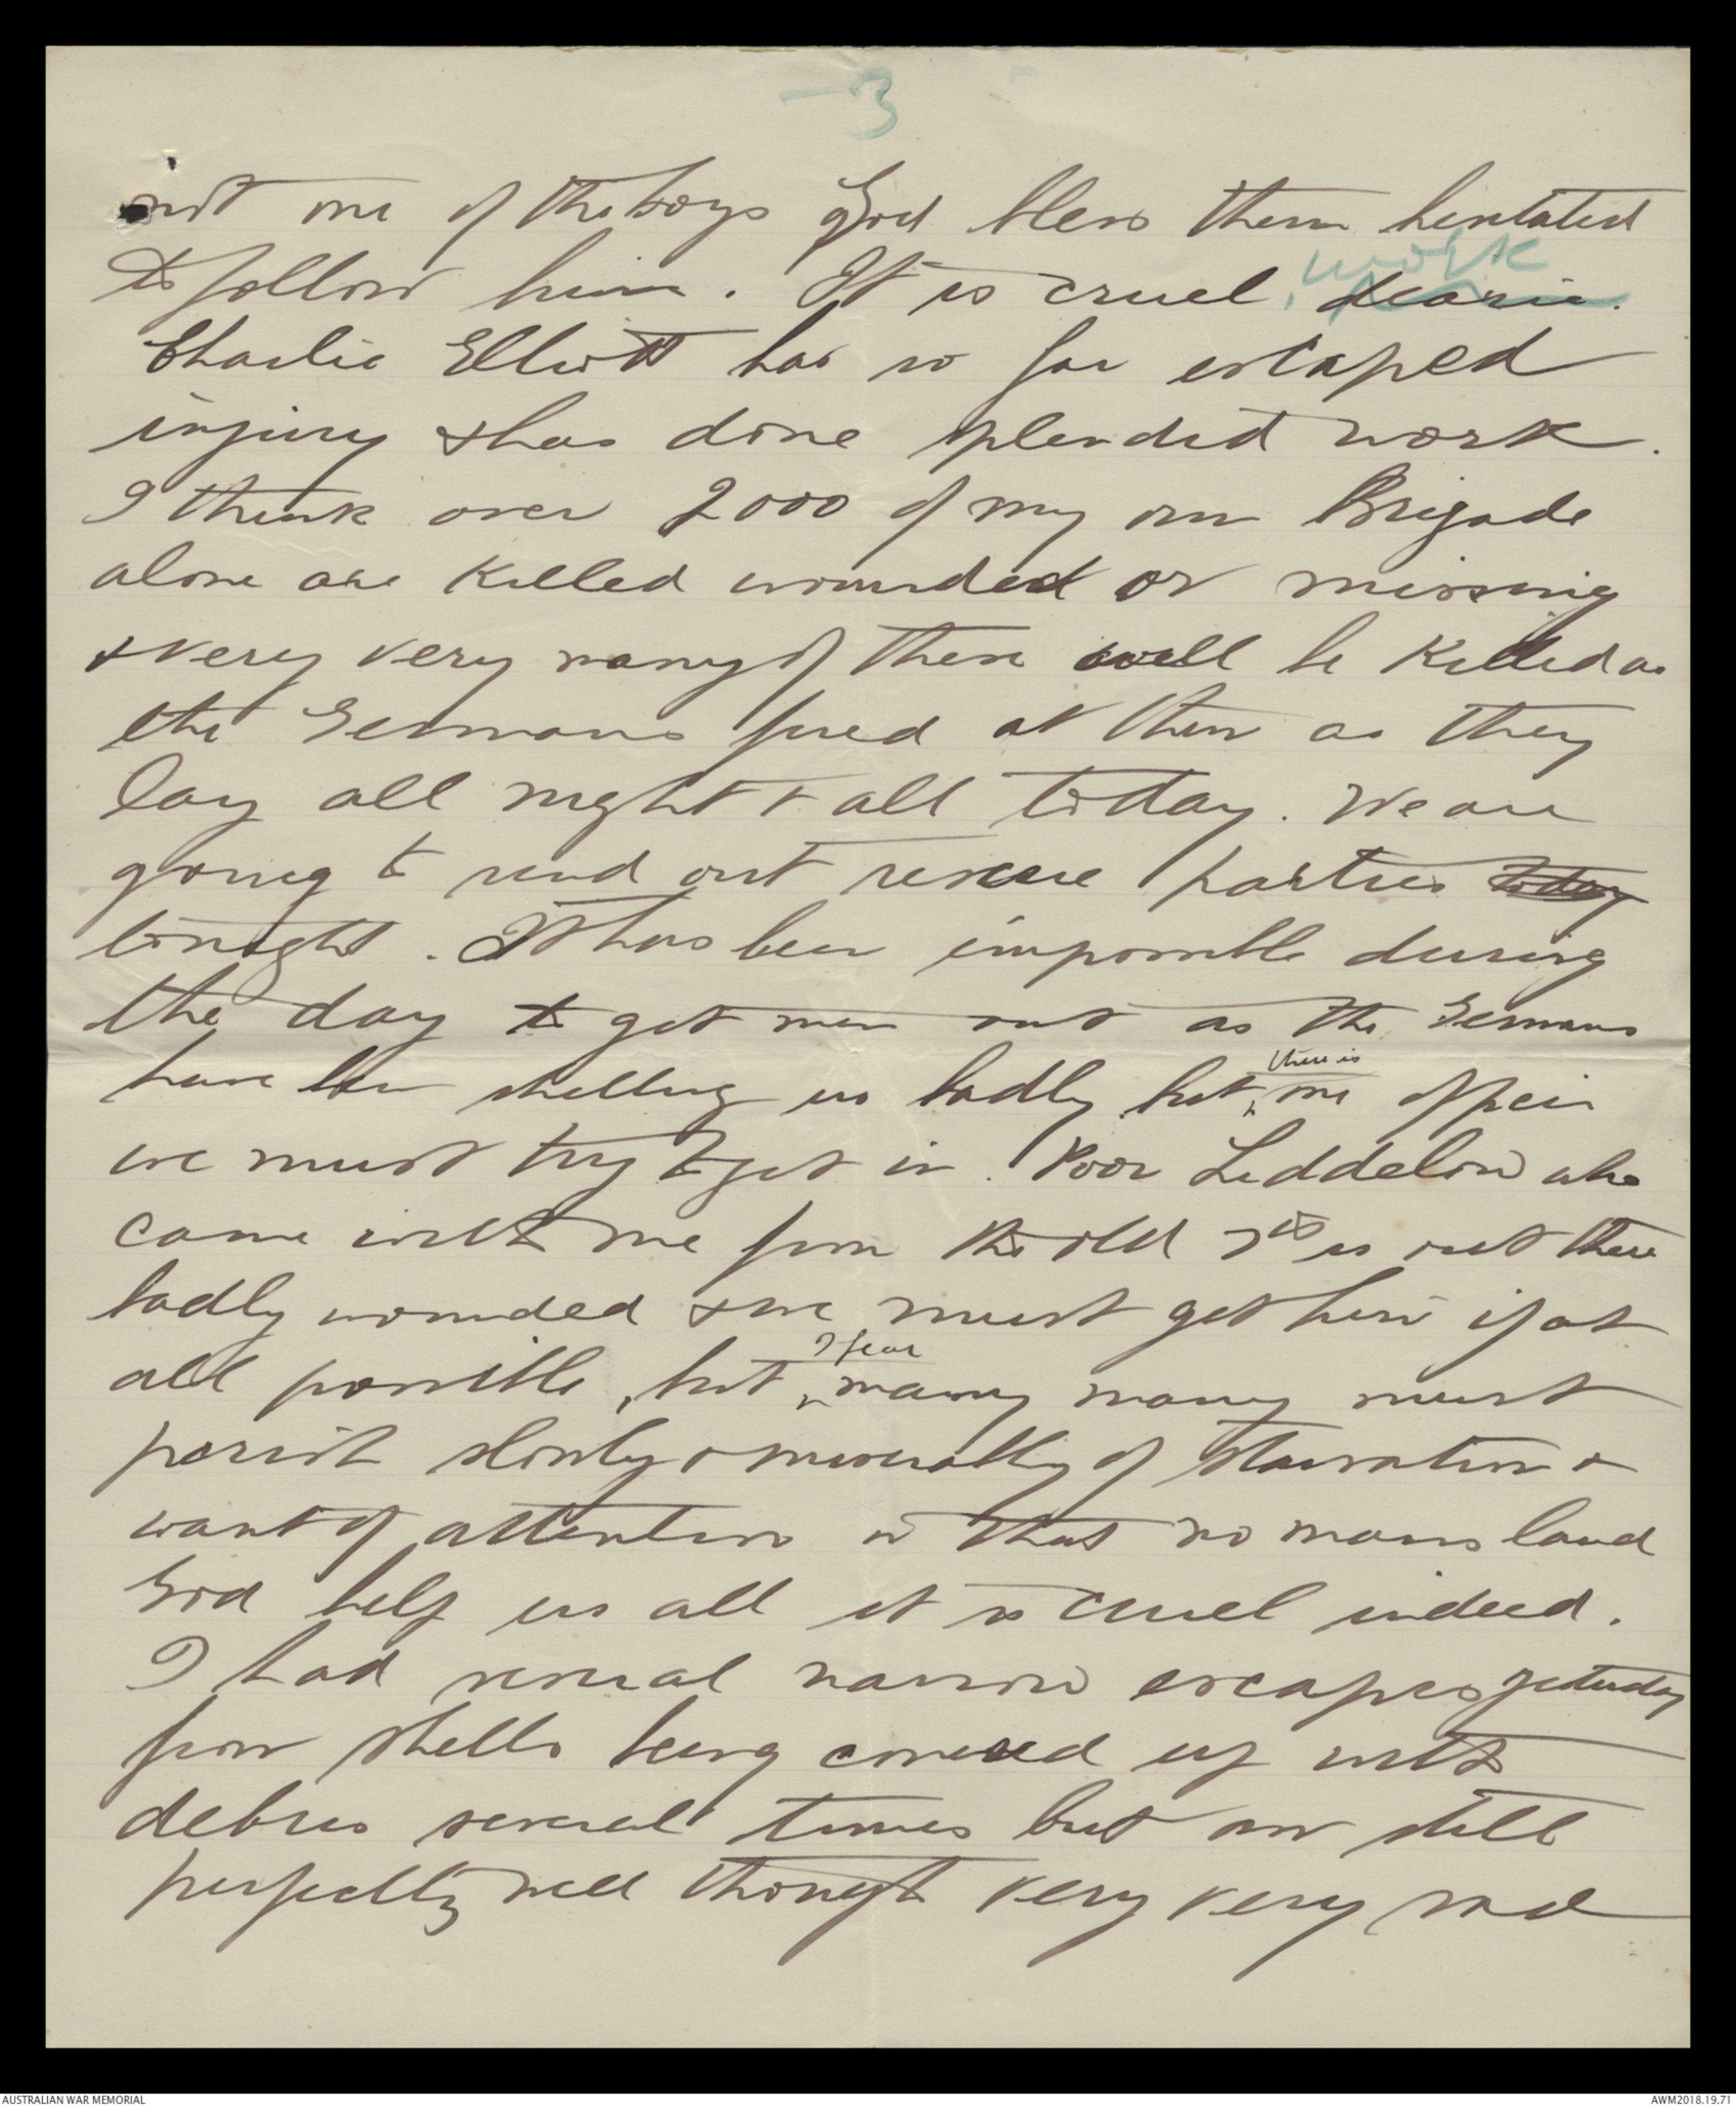 - 3 -
not one of the boys God bless them hesitated
to follow him. It is cruel, work dearie.
Charlie Elliott has so far escaped
injury & has done splendid work.
I think over 2000 of my own Brigade
alone are killed wounded or missing
& very very many of these will be killed as
the Germans fired at them as they
lay all night & all today. We are
going to send out rescue parties today
tonight. It has been impossible during
the day to get men out as the Germans
have been shelling us badly but there is one officer
we must try to get in. Poor Liddelow who
came with me from the old 7th is out there
badly wounded & we must get him if at
all possible, but I fear many many must
perish slowly & miserably of starvation &
want of attention in that no mans land
God help us all it is cruel indeed.
I had several narrow escapes yesterday
from shells being covered up with
debris several times but am still
perfectly well though very very sad
AUSTRALIAN WAR MEMORIAL
AWM2018.19.71